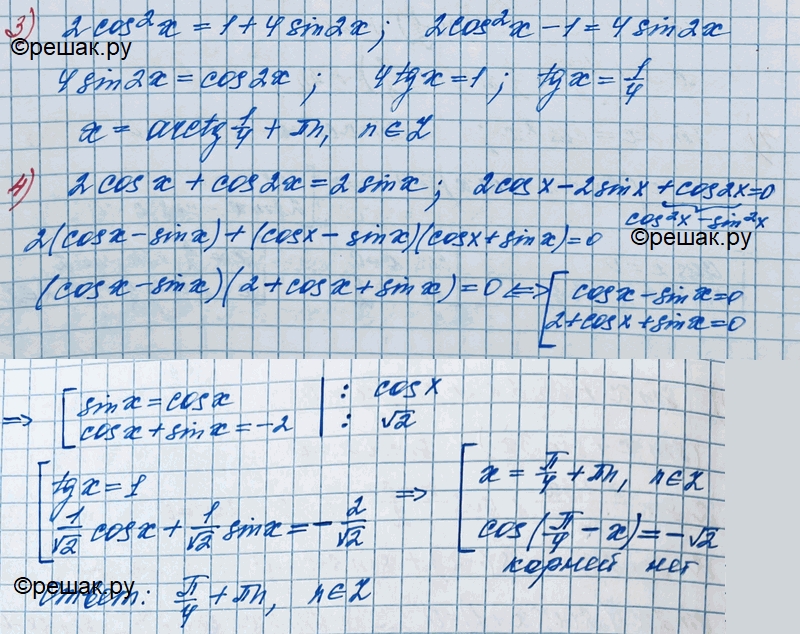 3) 2cos²x = 1 + 4sin2x; 2cos²x − 1 = 4sin2x
©решак.ру
4sin2x = cos2x; 4tgx = 1; tgx = 1/4
x = arctg 1/4 + πn, n∈Z
4) 2cosx + cos2x = 2sinx; 2cosx − 2sinx + cos2x = 0
cos²x − sin²x
©решак.ру
2(cosx − sinx) + (cosx − sinx)(cosx + sinx) = 0
(cosx − sinx)(2 + cosx + sinx) = 0 <=> [ cosx − sinx = 0
2 + cosx + sinx = 0
=> [ sinx = cosx | : cosx
cosx + sinx = −2 | : √2
[ tgx = 1
1/√2 cosx + 1/√2 sinx = − 2/√2
=> [ x = π/4 + πn, n∈Z
cos(π/4 − x) = −√2
корней нет
©решак.ру
Ответ: π/4 + πn, n∈Z